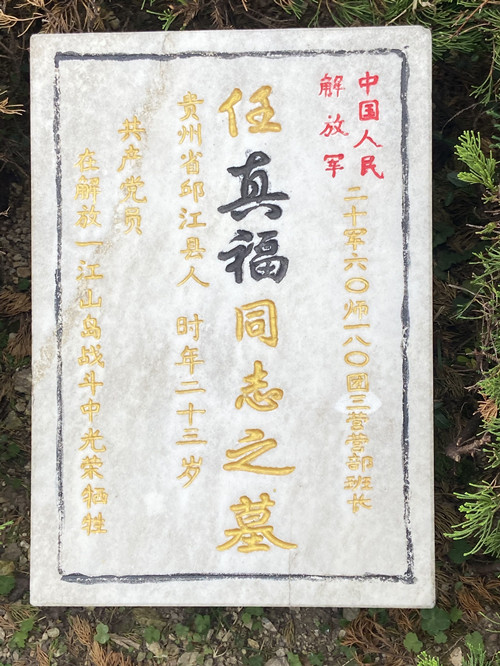 中国人民
解放军
二十军六〇师一八〇团三营营部班长
任真福同志之墓
贵州省邱江县人 时年二十三岁
共产党员
在解放一江山岛战斗中光荣牺牲